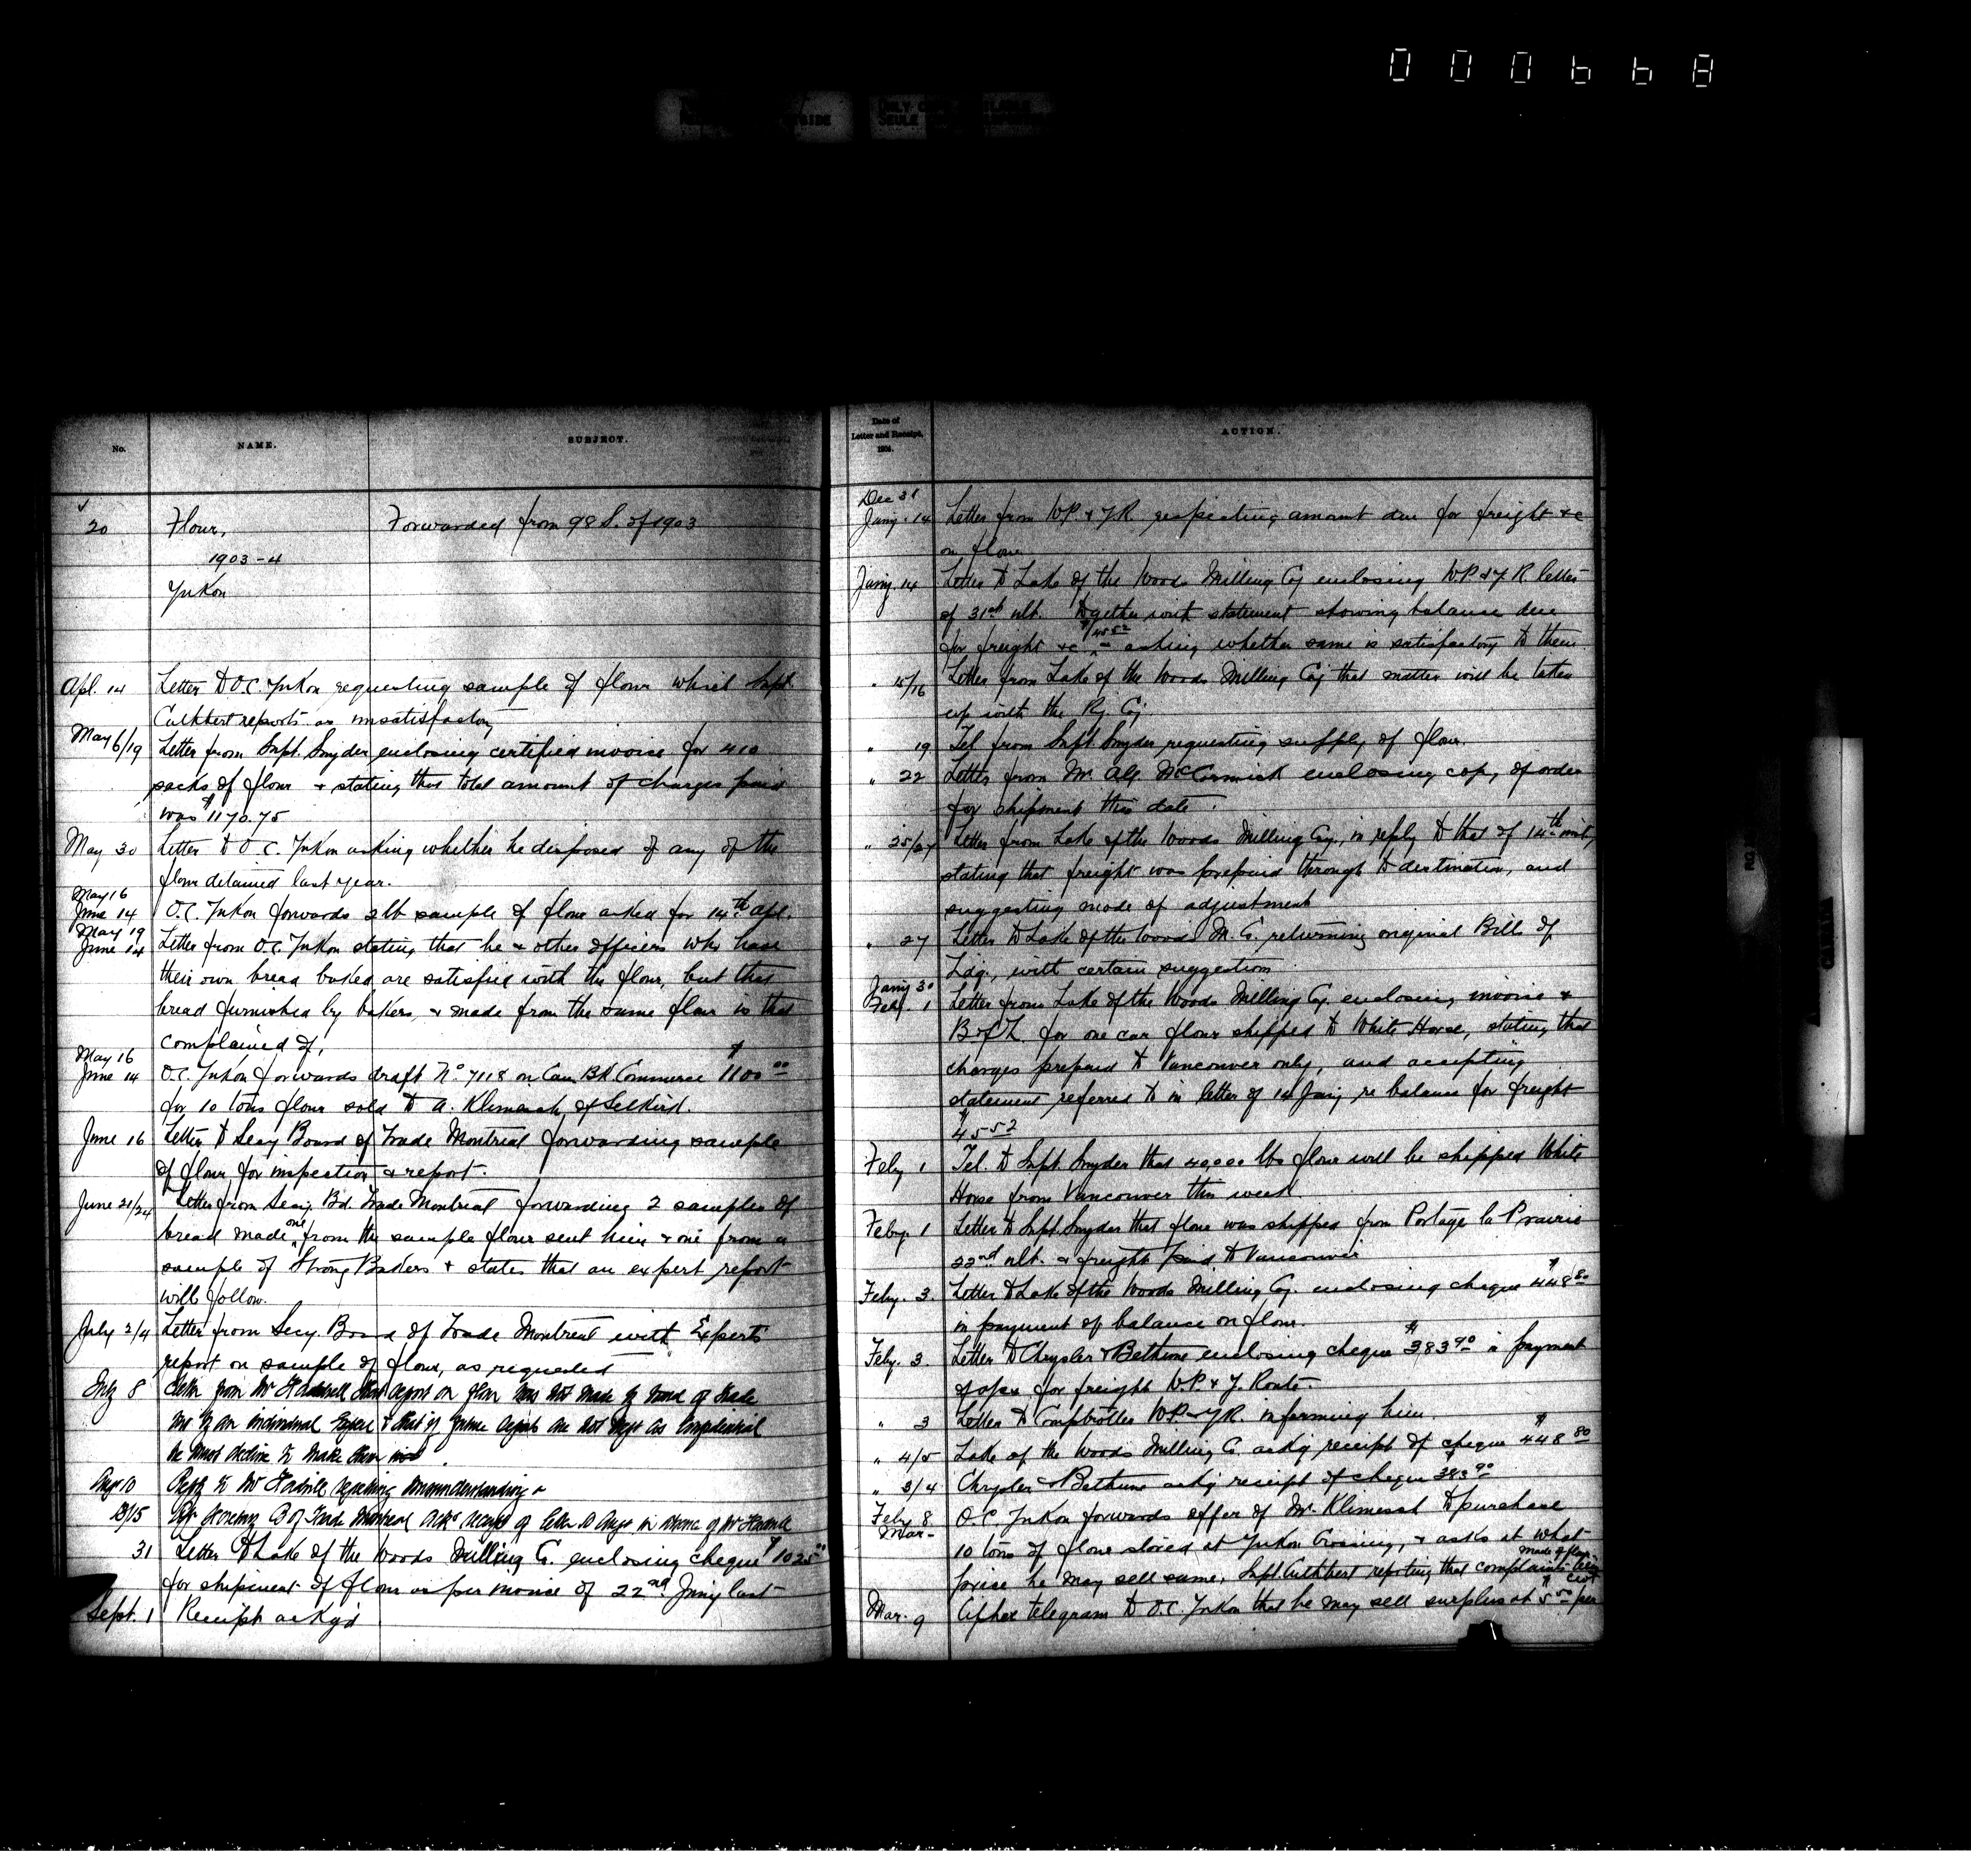 000668
No.
NAME.
SUBJECT.
20
Flour,
Forwarded from 98 S. of 1903
1903-4
Yukon
Apl. 14
Letter to O.C. Yukon requesting sample of flour which Supt.
Cuthbert reports as unsatisfactory
May 6/19
Letter from Supt. Snyder enclosing certified invoice for 410
sacks of flour & stating that total amount of charges paid
was $1170.75
May 30
Letter to O.C. Yukon asking whether he disposed of any of the
flour detained last year.
May 16
June 14
O.C. Yukon forwards 2 lb sample of flour asked for 14th Apl.
May 19
June 14
Letter from O.C. Yukon stating that he & other officers who have
their own bread baked are satisfied with the flour, but that
bread furnished by bakers, & made from the same flour is that
complained of.
May 16
June 14
O.C. Yukon forwards draft No. 7118 on Can Bk Commerce $1100 00
for 10 tons flour sold to A. Klimesch, of Selkirk.
June 16
Letter to Secy Board of Trade Montreal forwarding sample
of flour for inspection & report.
June 21/24
Letter from Secy. Bd. Trade Montreal forwarding 2 samples of
bread made one from the sample flour sent him & one from a
sample of Strong Bakers & states that an expert report
will follow.
July 2/4
Letter from Secy. Board of Trade Montreal with Experts
report on sample of flour, as requested
July 8
Letter from Mr that report on flour was not made by Board of Trade
but by an individual Expert & that if future reports are not kept as Confidential
he must decline to make them
10
Reply to Mr regretting misunderstanding
13/15
Secretary B of Trade Montreal receipt of letter 10 in
31
Letter to Lake of the Woods Milling Co. enclosing cheque $1025 00
for shipment of flour as per invoice of 22nd Jany last
Sept. 1
Receipt ackg'd
Date of
Letter and Receipt,
1904.
ACTION.
Dec 31
Jany. 14
Letter from W.P. & Y.R. respecting amount due for freight &c
on flour
Jany. 14
Letter to Lake of the Woods Milling Coy enclosing W.P. & Y.R. letter
of 31st ult. together with statement showing balance due
for freight &c, $45 52 asking whether same is satisfactory to them.
" 15/16
Letter from Lake of the Woods Milling Coy that matter will be taken
up with the Ry. Coy
" 19
Tel from Supt. Snyder requesting supply of flour.
" 22
Letter from Mr. Alf. McCormick enclosing copy of order
for shipment this date.
" 25/27
Letter from Lake of the Woods Milling Coy., in reply to that of 14th inst,
stating that freight was prepaid through to destination, and
suggesting mode of adjustment
" 27
Letter to Lake of the Woods M. C. returning original Bills of
Ldg., with certain suggestion
Jany 30
Feby. 1
Letter from Lake of the Woods Milling Co. enclosing invoice &
B of L. for one car flour shipped to White Horse, stating that
charges prepaid to Vancouver only, and accepting
statement referred to in letter of 14 Jany re balance for freight
$45 52
Feby 1
Tel. to Supt. Snyder that 40,000 lbs flour will be shipped White
Horse from Vancouver this week
Feby. 1
Letter to Supt. Snyder that flour was shipped from Portage la Prairie
22nd ult. & freight paid to Vancouver
Feby. 3
Letter to Lake of the Woods Milling Cy. enclosing cheque $448 80
in payment of balance on flour.
Feby. 3.
Letter to Chrysler & Bethune enclosing cheque $383 90 in payment
of a/cs for freight W.P. & Y. Route.
" 3
Letter to Comptroller W.P. & Y.R. informing him.
" 4/5
Lake of the Woods Milling C. ackg receipt of cheque $448 80
" 3/4
Chrysler & Bethune ackg receipt of cheque $383 90
Feby 8
Mar-
O.C. Yukon forwards offer of Mr. Klimesch to purchase
10 tons of flour stored at Yukon Crossing, & asks at what
price he may sell same. Supt Cuthbert reporting that complaints being made of flour
Mar. 9
Cipher telegram to O.C. Yukon that he may sell surplus at $5 50 per cwt